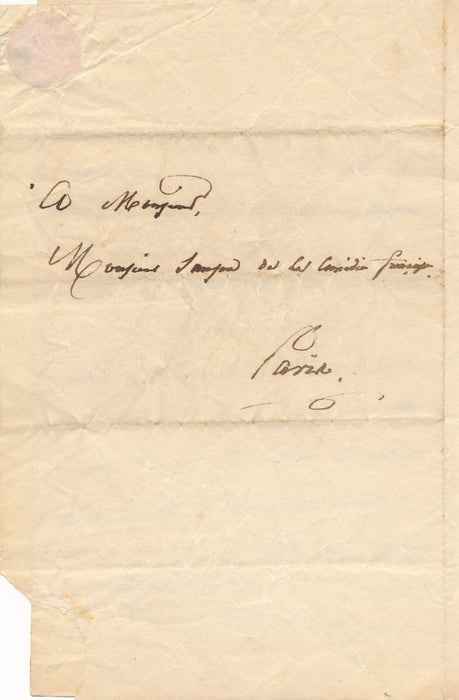 A Monsieur,
Monsieur Samson de la Comédie française
Paris.